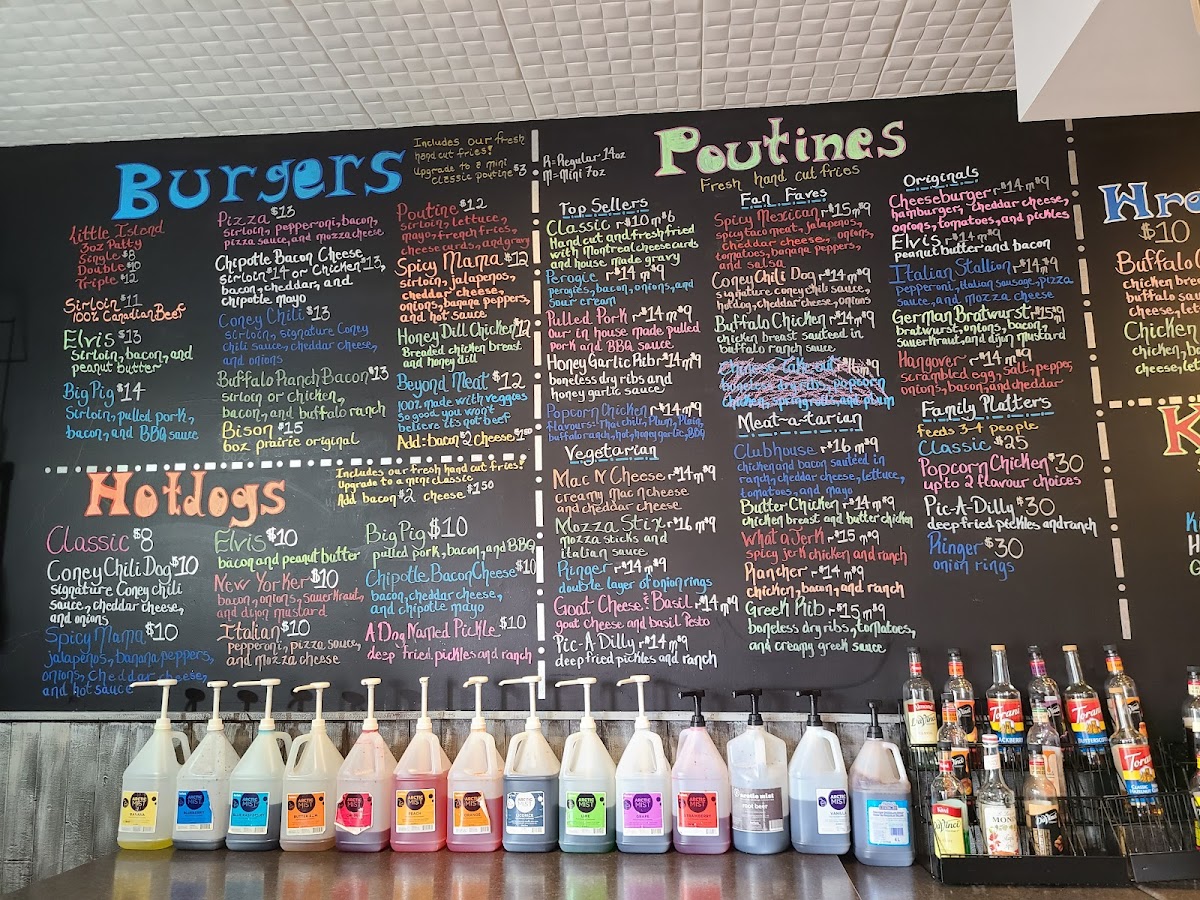 Burgers
Includes our fresh
hand cut fries!
upgrade to a mini
classic poutine $3
Little Island
3oz Patty
Single $8
Double $10
Triple $12
Sirloin $11
100% Canadian Beef
Elvis $13
Sirloin, bacon, and
peanut butter
Big Pig $14
Sirloin, pulled pork,
bacon, and BBQ sauce
Pizza $13
Sirloin, pepperoni, bacon,
pizza sauce, and mozza cheese
Chipotle Bacon Cheese
Sirloin $14 or Chicken $13,
bacon, cheddar, and
chipotle mayo
Coney Chili $13
Sirloin, signature Coney
chili sauce, cheddar cheese,
and onions
Buffalo Ranch Bacon $13
sirloin or chicken,
bacon, and buffalo ranch
Bison $15
6oz prairie original
Poutine $12
sirloin, lettuce,
mayo, french fries,
cheese curds, and gravy
Spicy Mama $12
sirloin, jalapenos,
cheddar cheese,
onions, banana peppers,
and hot sauce
Honey Dill Chicken $12
Breaded chicken breast
and honey dill
Beyond Meat $12
100% made with veggies
so good you won't
believe it's not beef
Add: bacon $2 cheese $1.50
Hotdogs
Includes our fresh hand cut fries!
Upgrade to a mini classic
Add bacon $2 cheese $1.50
Classic $8
Coney Chili Dog $10
signature Coney chili
sauce, cheddar cheese,
and onions
Spicy Mama $10
jalapeños, banana peppers,
onions, cheddar cheese,
and hot sauce
Elvis $10
bacon and peanut butter
New Yorker $10
bacon, onions, sauerkraut,
and dijon mustard
Italian $10
pepperoni, pizza sauce,
and mozza cheese
Big Pig $10
pulled pork, bacon, and BBQ
Chipotle Bacon Cheese $10
bacon, cheddar cheese,
and chipotle mayo
A Dog Named Pickle $10
deep fried pickles and ranch
R=Regular 14oz
M=Mini 7oz
Poutines
Fresh hand cut fries
Top Sellers
Classic r$10 m$6
Hand cut and fresh fried
with Montreal cheese curds
and house made gravy
Perogie r$14 m$9
perogies, bacon, onions, and
sour cream
Pulled Pork r$14 m$9
Our in house made pulled
pork and BBQ sauce
Honey Garlic Rib r$14 m$9
boneless dry ribs and
honey garlic sauce
Popcorn Chicken r$14 m$9
flavours: Thai chili, Plum, Plain,
buffalo ranch, hot, honey garlic, BBQ
Vegetarian
Mac N Cheese r$14 m$9
creamy mac n cheese
and cheddar cheese
Mozza Stix r$16 m$9
mozza sticks and
italian sauce
Ringer r$14 m$9
double layer of onion rings
Goat Cheese & Basil r$14 m$9
goat cheese and basil Pesto
Pic-A-Dilly r$14 m$9
deep fried pickles and ranch
Fan Faves
Spicy Mexican r$15 m$9
spicy taco meat, jalapenos,
cheddar cheese, onions,
tomatoes, banana peppers,
and salsa
Coney Chili Dog r$14 m$9
signature coney chili sauce,
hot dog, cheddar cheese, onions
Buffalo Chicken r$14 m$9
chicken breast sauteed in
buffalo ranch sauce
Chinese Take-out r$16 m$9
boneless dry ribs, popcorn
chicken, spring rolls, and plum
Meat-a-tarian
Clubhouse r$16 m$9
chicken and bacon sauteed in
ranch, cheddar cheese, lettuce,
tomatoes, and mayo
Butter Chicken r$14 m$9
chicken breast and butter chicken
What a Jerk r$15 m$9
spicy jerk chicken and ranch
Rancher r$14 m$9
chicken, bacon, and ranch
Greek Rib r$15 m$9
boneless dry ribs, tomatoes,
and creamy greek sauce
Originals
Cheeseburger r$14 m$9
hamburger, cheddar cheese,
onions, tomatoes, and pickles
Elvis r$14 m$9
peanut butter and bacon
Italian Stallion r$14 m$9
pepperoni, italian sausage, pizza
sauce, and mozza cheese
German Bratwurst r$15 m$9
bratwurst, onions, bacon,
sauerkraut, and dijon mustard
Hangover r$14 m$9
scrambled egg, salt, pepper,
onions, bacon, and cheddar
Family Platters
feeds 3-4 people
Classic $25
Popcorn Chicken $30
up to 2 flavour choices
Pic-A-Dilly $30
deep fried pickles and ranch
Ringer $30
onion rings
Wra
$10
Buffalo
chicken brea
buffalo sau
cheese, let
Chicken
chicken, b
cheese, let
K
ARCTIC MIST
BANANA
ARCTIC MIST
ARCTIC MIST
ARCTIC MIST
ARCTIC MIST
ARCTIC MIST
PEACH
ARCTIC MIST
ORANGE
ARCTIC MIST
LICORICE
ARCTIC MIST
LIME
ARCTIC MIST
GRAPE
ARCTIC MIST
arctic mist
root beer
VANILLA
DaVinci
Torani
Torani
Torani
DaVinci
MONIN
DaVinci